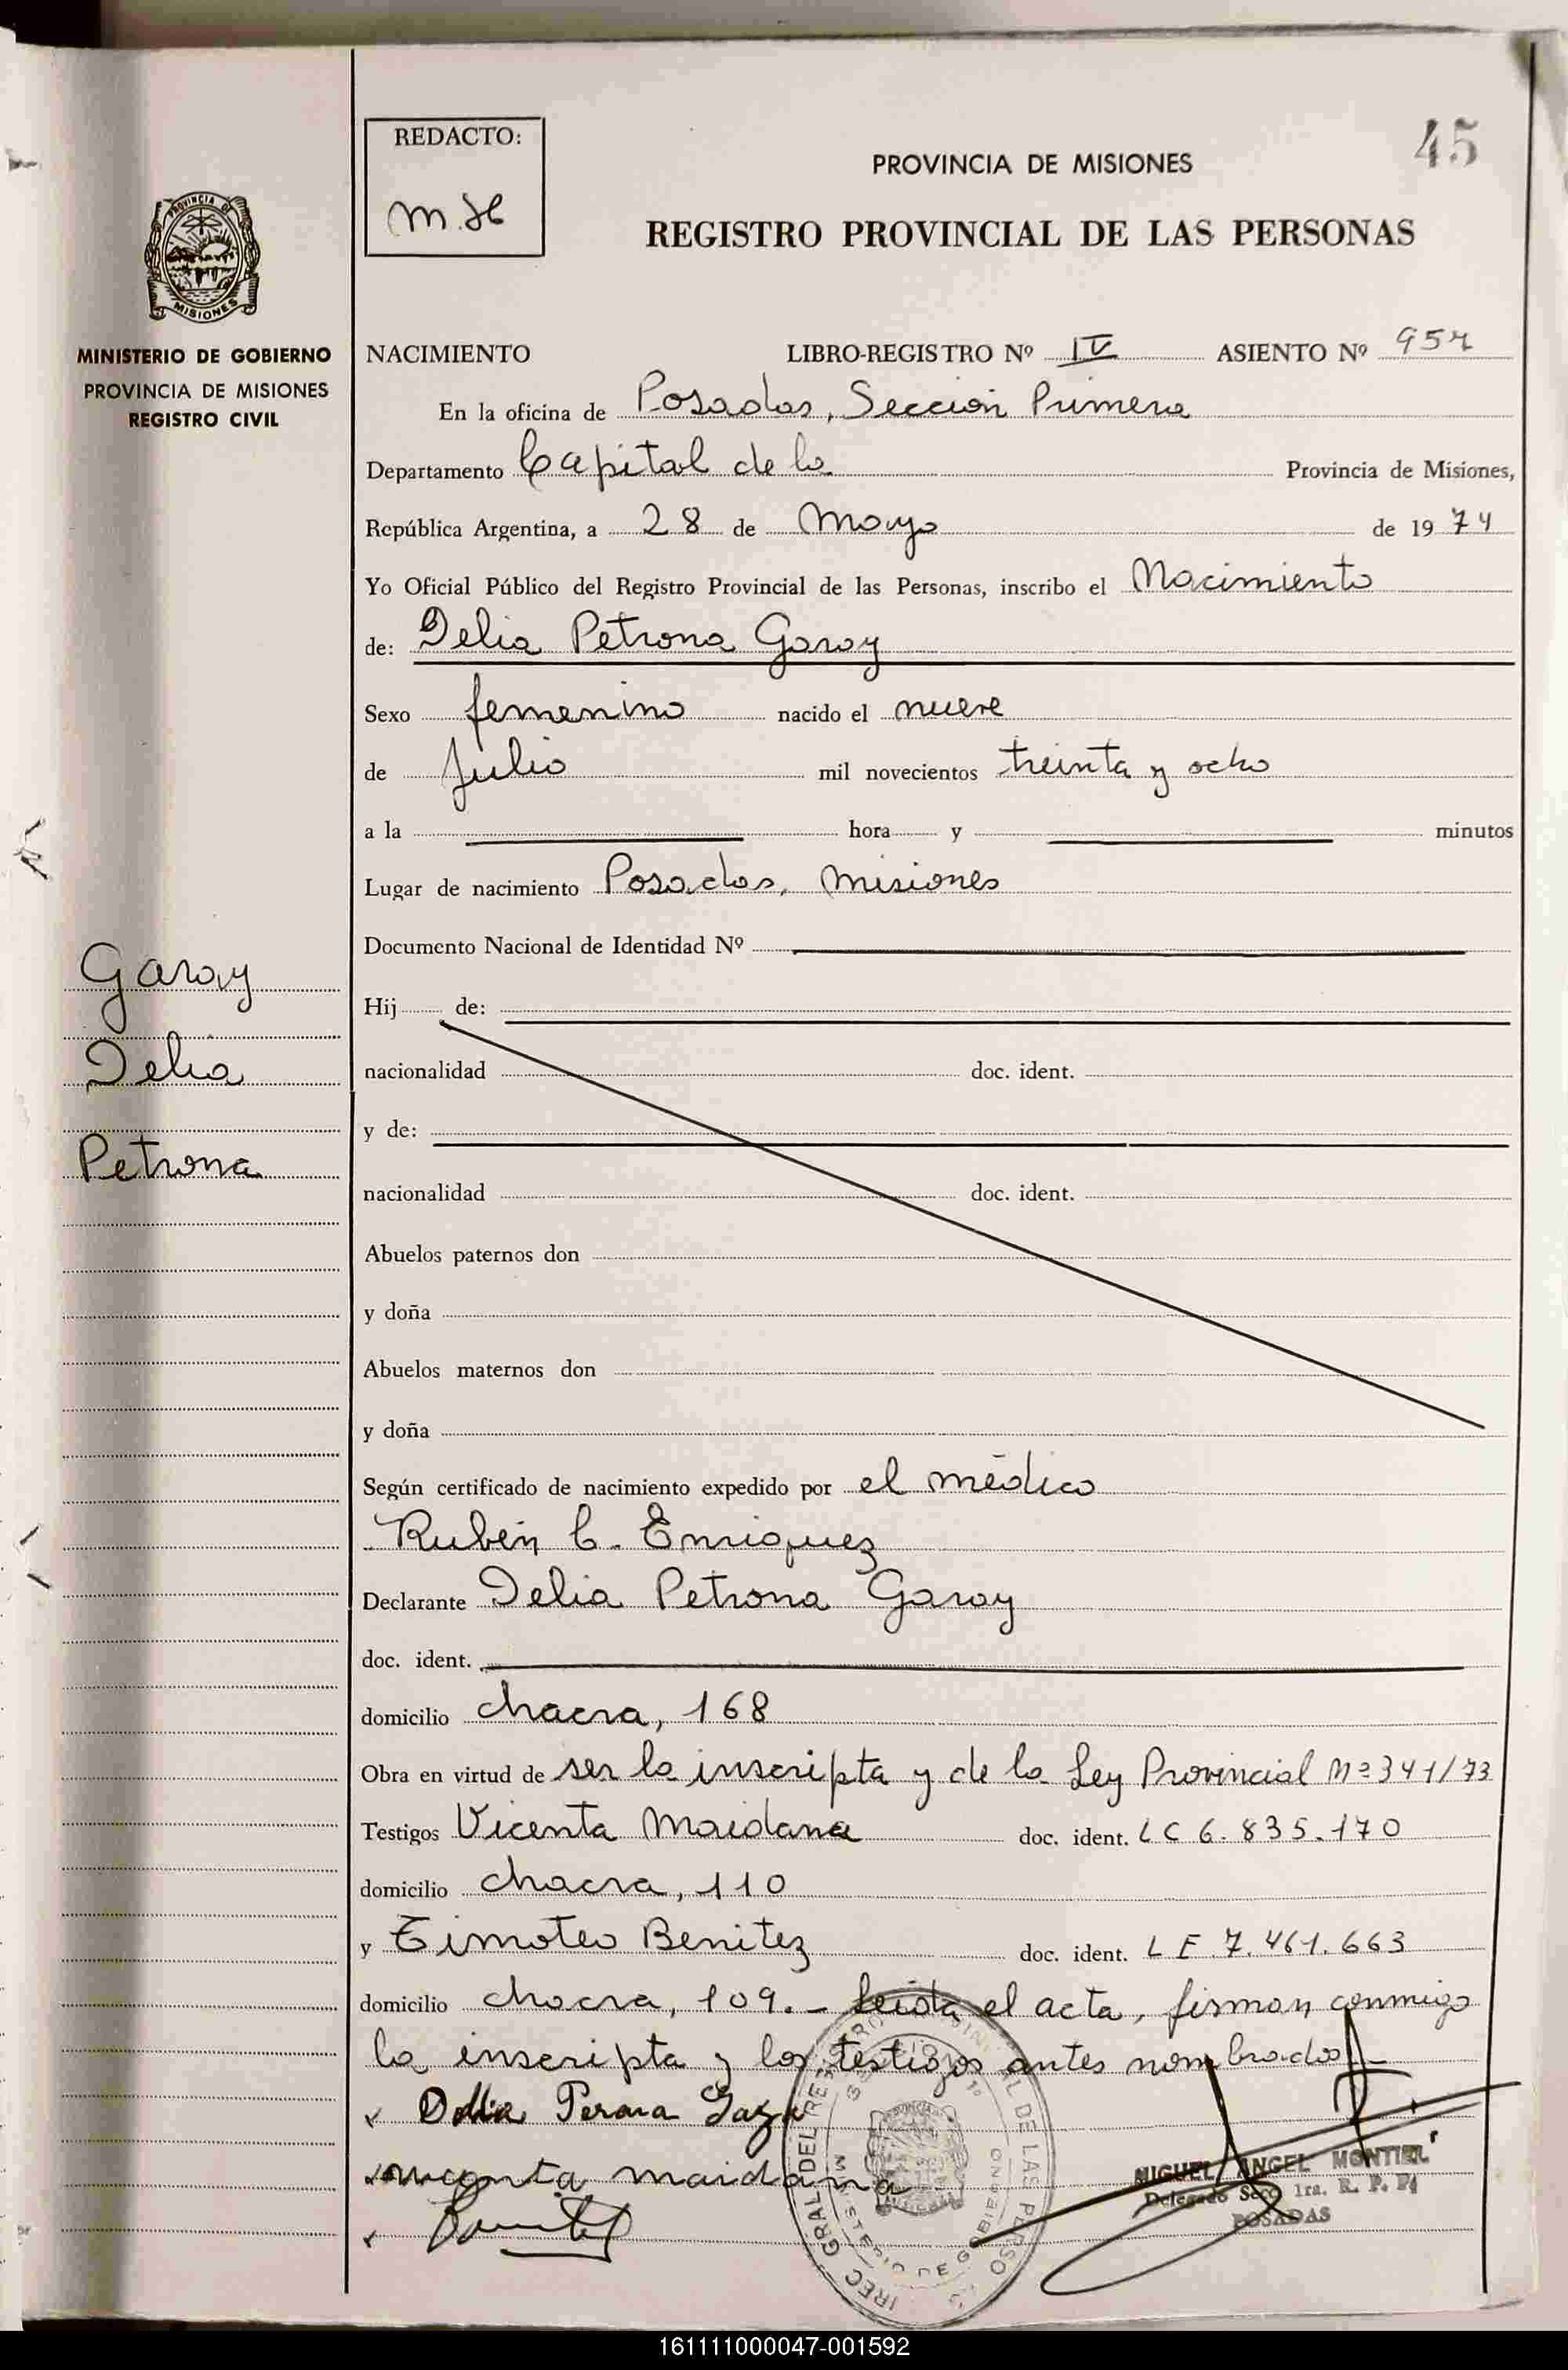 REDACTO:
m.H
45
PROVINCIA DE MISIONES
REGISTRO PROVINCIAL DE LAS PERSONAS
PROVINCIA DE
MISIONES
MINISTERIO DE GOBIERNO
PROVINCIA DE MISIONES
REGISTRO CIVIL
NACIMIENTO LIBRO-REGISTRO Nº IV ASIENTO Nº 957
En la oficina de Posadas, Sección Primera
Departamento Capital de la Provincia de Misiones,
República Argentina, a 28 de Mayo de 1974
Yo Oficial Público del Registro Provincial de las Personas, inscribo el Nacimiento
de: Delia Petrona Garay
Sexo femenino nacido el nueve
de Julio mil novecientos treinta y ocho
a la hora y minutos
Lugar de nacimiento Posadas, Misiones
Documento Nacional de Identidad Nº
Garay
Delia
Petrona
Hij de:
nacionalidad doc. ident.
y de:
nacionalidad doc. ident.
Abuelos paternos don
y doña
Abuelos maternos don
y doña
Según certificado de nacimiento expedido por el médico
Rubén C. Enriquez
Declarante Delia Petrona Garay
doc. ident.
domicilio chacra, 168
Obra en virtud de ser la inscripta y de la Ley Provincial Nº 341/73
Testigos Vicenta Maidana doc. ident. LC 6.835.170
domicilio chacra, 110
y Timoteo Benitez doc. ident. LE 7.461.663
domicilio chacra, 109.- Leída el acta, firman conmigo
la inscripta y los testigos antes nombrados.-
maidana
MIGUEL ANGEL MONTIEL
Delegado Secc. 1ra. R. P. P.
POSADAS
161111000047-001592